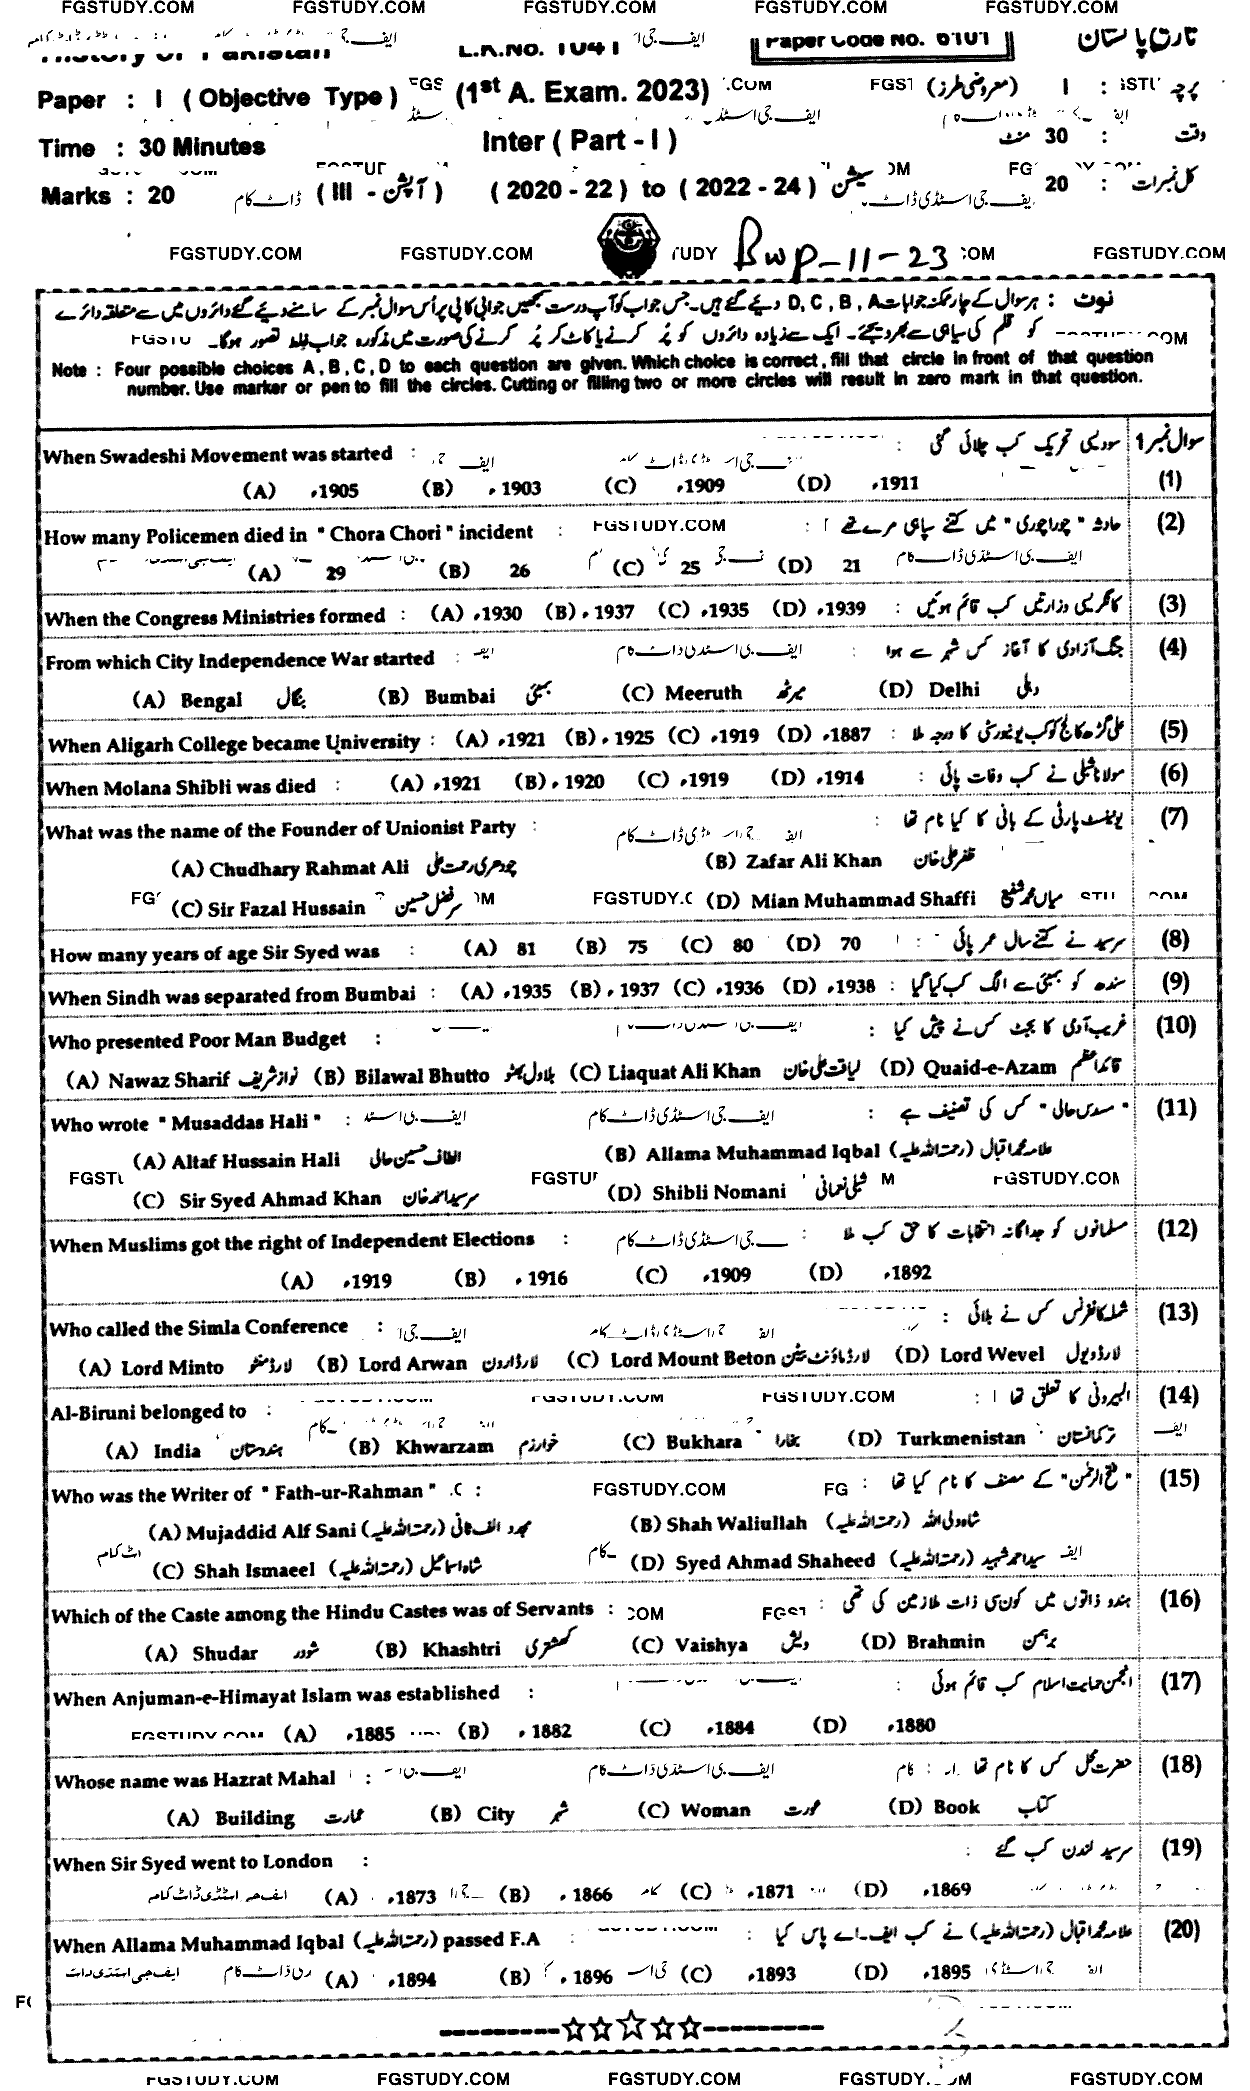 FGSTUDY.COM FGSTUDY.COM FGSTUDY.COM FGSTUDY.COM FGSTUDY.COM
History of Pakistan L.K.No. 1041 Paper Code No. 6101 تاریخ پاکستان
Paper : I ( Objective Type ) (1st A. Exam. 2023) پرچہ : I (معروضی طرز)
Time : 30 Minutes Inter ( Part - I ) وقت : 30 منٹ
Marks : 20 (آپشن - III) ( 2020 - 22 ) to ( 2022 - 24 ) سیشن کل نمبرات : 20
FGSTUDY.COM FGSTUDY.COM Bwp-11-23 FGSTUDY.COM
نوٹ : ہر سوال کے چار ممکنہ جوابات A ، B ، C ، D دیئے گئے ہیں۔ جس جواب کو آپ درست سمجھیں جوابی کاپی پر اُس سوال نمبر کے سامنے دیئے گئے دائروں میں سے متعلقہ دائرے
کو قلم کی سیاہی سے بھر دیجئے۔ ایک سے زیادہ دائروں کو پُر کرنے یا کاٹ کر پُر کرنے کی صورت میں مذکورہ جواب غلط تصور ہوگا۔
Note : Four possible choices A , B , C , D to each question are given. Which choice is correct , fill that circle in front of that question
number. Use marker or pen to fill the circles. Cutting or filling two or more circles will result in zero mark in that question.
When Swadeshi Movement was started : سودیشی تحریک کب چلائی گئی : سوال نمبر 1
(A) 1905ء (B) 1903ء (C) 1909ء (D) 1911ء (1)
How many Policemen died in " Chora Chori " incident : حادثہ "چوراچوری" میں کتنے سپاہی مرے تھے : (2)
(A) 29 (B) 26 (C) 25 (D) 21
When the Congress Ministries formed : (A) 1930ء (B) 1937ء (C) 1935ء (D) 1939ء کانگریسی وزارتیں کب قائم ہوئیں : (3)
From which City Independence War started : جنگ آزادی کا آغاز کس شہر سے ہوا : (4)
(A) Bengal بنگال (B) Bumbai بمبئی (C) Meeruth میرٹھ (D) Delhi دہلی
When Aligarh College became University : (A) 1921ء (B) 1925ء (C) 1919ء (D) 1887ء علی گڑھ کالج کو کب یونیورسٹی کا درجہ ملا : (5)
When Molana Shibli was died : (A) 1921ء (B) 1920ء (C) 1919ء (D) 1914ء مولانا شبلی نے کب وفات پائی : (6)
What was the name of the Founder of Unionist Party : یونینسٹ پارٹی کے بانی کا کیا نام تھا : (7)
(A) Chudhary Rahmat Ali چودھری رحمت علی (B) Zafar Ali Khan ظفر علی خان
(C) Sir Fazal Hussain سر فضل حسین (D) Mian Muhammad Shaffi میاں محمد شفیع
How many years of age Sir Syed was : (A) 81 (B) 75 (C) 80 (D) 70 سرسید نے کتنے سال عمر پائی : (8)
When Sindh was separated from Bumbai : (A) 1935ء (B) 1937ء (C) 1936ء (D) 1938ء سندھ کو بمبئی سے الگ کب کیا گیا : (9)
Who presented Poor Man Budget : غریب آدمی کا بجٹ کس نے پیش کیا : (10)
(A) Nawaz Sharif نواز شریف (B) Bilawal Bhutto بلاول بھٹو (C) Liaquat Ali Khan لیاقت علی خان (D) Quaid-e-Azam قائداعظم
Who wrote " Musaddas Hali " : "مسدس حالی" کس کی تصنیف ہے : (11)
(A) Altaf Hussain Hali الطاف حسین حالی (B) Allama Muhammad Iqbal علامہ محمد اقبال (رحمتہ اللہ علیہ)
(C) Sir Syed Ahmad Khan سرسید احمد خان (D) Shibli Nomani شبلی نعمانی
When Muslims got the right of Independent Elections : مسلمانوں کو جداگانہ انتخابات کا حق کب ملا : (12)
(A) 1919ء (B) 1916ء (C) 1909ء (D) 1892ء
Who called the Simla Conference : شملہ کانفرنس کس نے بلائی : (13)
(A) Lord Minto لارڈ منٹو (B) Lord Arwan لارڈ ارون (C) Lord Mount Beton لارڈ ماؤنٹ بیٹن (D) Lord Wevel لارڈ ویول
Al-Biruni belonged to : البیرونی کا تعلق تھا : (14)
(A) India ہندوستان (B) Khwarzam خوارزم (C) Bukhara بخارا (D) Turkmenistan ترکمانستان
Who was the Writer of " Fath-ur-Rahman " : "فتح الرحمٰن" کے مصنف کا نام کیا تھا : (15)
(A) Mujaddid Alf Sani مجدد الف ثانی (رحمتہ اللہ علیہ) (B) Shah Waliullah شاہ ولی اللہ (رحمتہ اللہ علیہ)
(C) Shah Ismaeel شاہ اسماعیل (رحمتہ اللہ علیہ) (D) Syed Ahmad Shaheed سید احمد شہید (رحمتہ اللہ علیہ)
Which of the Caste among the Hindu Castes was of Servants : ہندو ذاتوں میں کون سی ذات ملازمین کی تھی : (16)
(A) Shudar شودر (B) Khashtri کھشتری (C) Vaishya ویش (D) Brahmin برہمن
When Anjuman-e-Himayat Islam was established : انجمن حمایت اسلام کب قائم ہوئی : (17)
(A) 1885ء (B) 1882ء (C) 1884ء (D) 1880ء
Whose name was Hazrat Mahal : حضرت محل کس کا نام تھا : (18)
(A) Building عمارت (B) City شہر (C) Woman عورت (D) Book کتاب
When Sir Syed went to London : سرسید لندن کب گئے : (19)
(A) 1873ء (B) 1866ء (C) 1871ء (D) 1869ء
When Allama Muhammad Iqbal (رحمتہ اللہ علیہ) passed F.A : علامہ محمد اقبال (رحمتہ اللہ علیہ) نے کب ایف۔اے پاس کیا : (20)
(A) 1894ء (B) 1896ء (C) 1893ء (D) 1895ء
FGSTUDY.COM FGSTUDY.COM FGSTUDY.COM FGSTUDY.COM FGSTUDY.COM